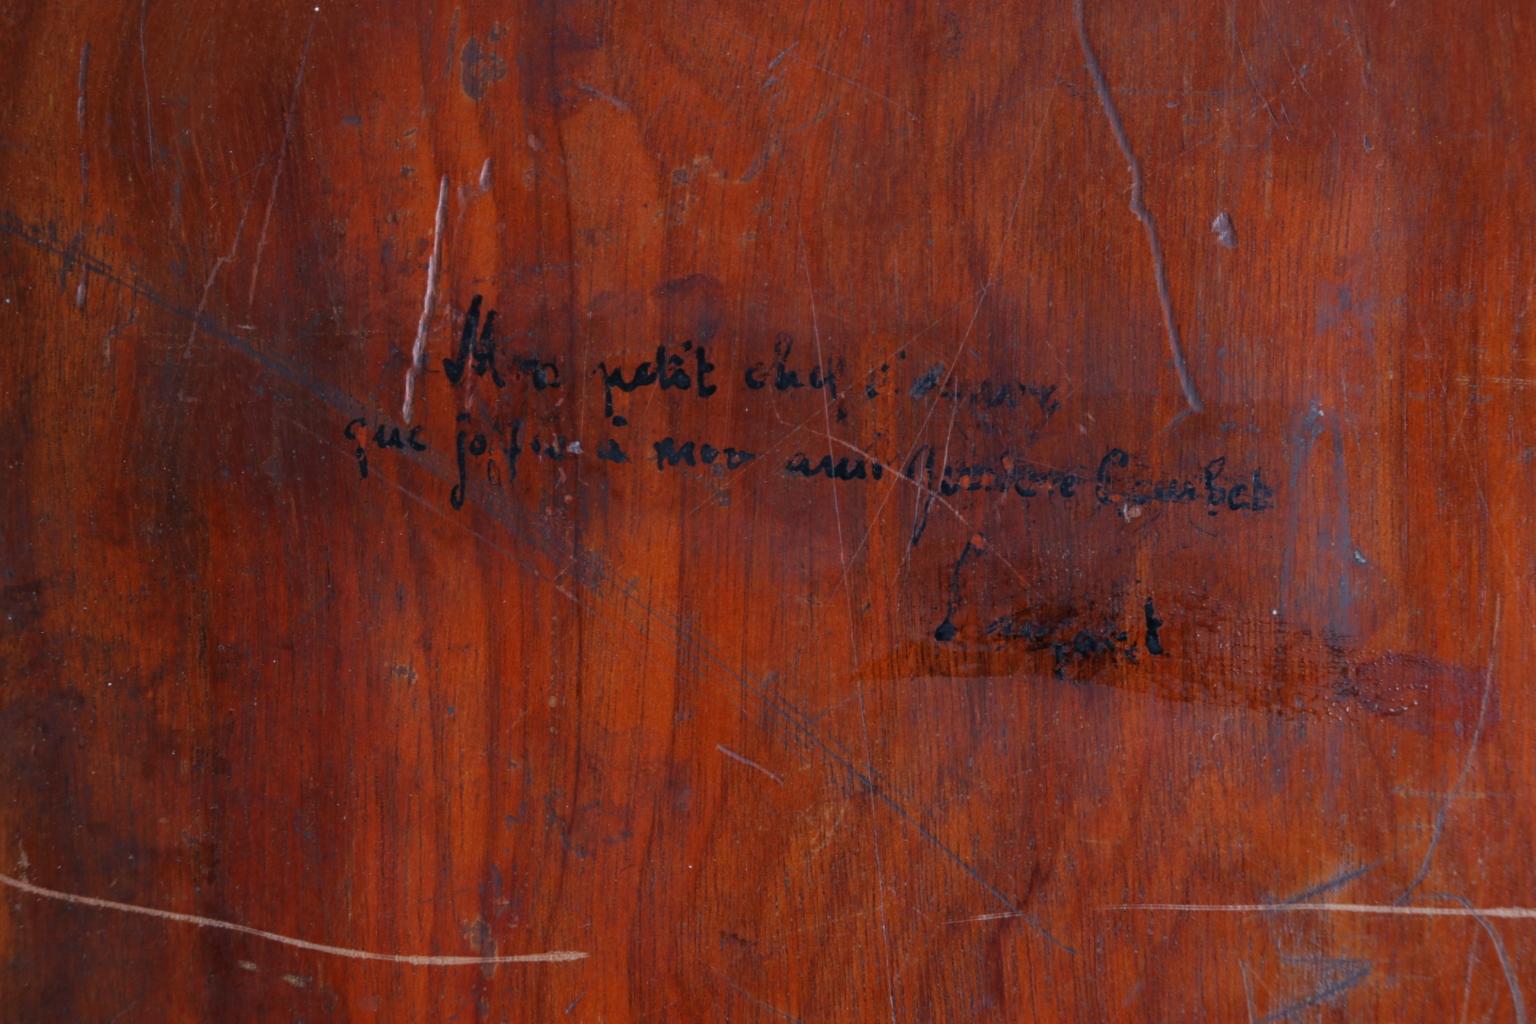 Mon petit chef d'œuvre
que j'offre à mon ami Gustave Courbet